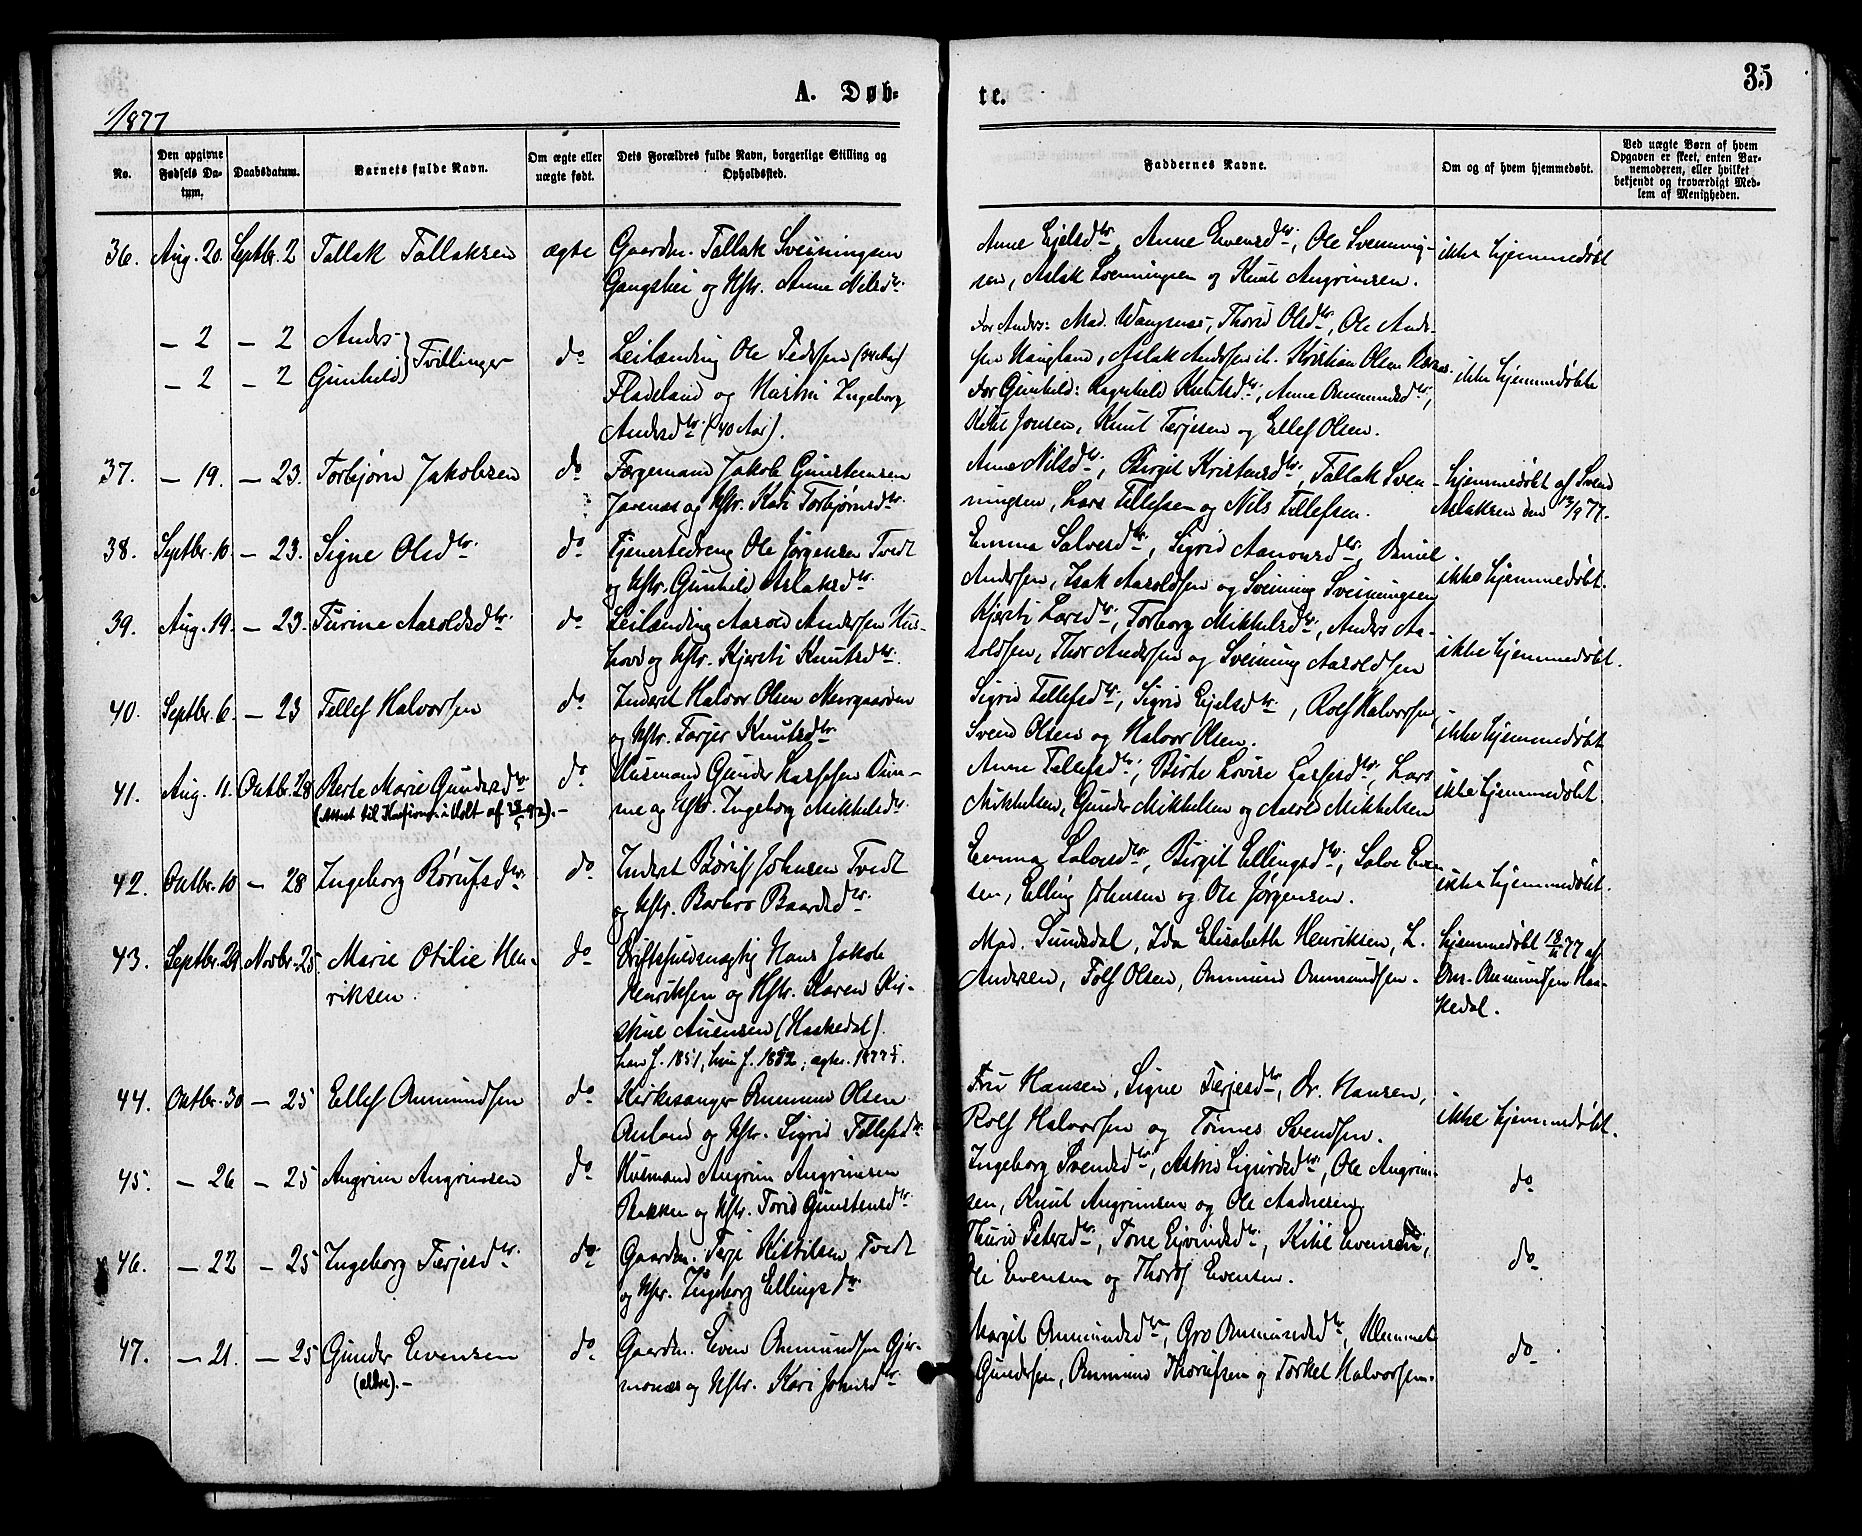 35
A. Døb=
te.
1877
No.
Den opgivne Fødsels Da-tum.
Daabsdatum.
Barnets fulde Navn.
Om ægte eller uægte født.
Dets Forældres fulde Navn, borgerlige Stilling og Opholdssted.
Faddernes Navne.
Om og af hvem hjemmedøbt.
Ved uægte Børn af hvem Opgaven er skeet, enten Bar-nemoderen, eller hvilket bekjendt og troværdigt Med-lem af Menigheden.
36. Aug. 20. Septbr. 2 Tallak Tallaksen ægte Gaardm. Tallak Sveinungsen
Gangshei og Hstr. Anne Nilsdtr.
Anne Ejelsdtr, Anne Evensdtr, Ole Svenning-
sen, Aslak Svenningsen og Knut Angrimsen.
ikke hjemmedøbt
— 2 — 2 Anders
— 2 — 2 Gunhild } Tvillinger do Leilænding Ole Pedersen (44 Aar)
Fladeland og Hustru Ingeborg
Andersdtr. (40 Aar).
For Anders: Mad. Vangsnes, Thorid Olsdtr, Ole Ander-
sen Haugland, Aslak Andersen ib. Kristian Olsen
For Gunhild: Ragnhild Knutsdtr, Anne Ommundsdtr,
Jonsen, Knut Terjesen og Ellef Olsen.
ikke hjemmedøbte
37. — 19. — 23. Torbjørn Jakobsen do Færgemand Jakob Gunstensen
Josenæs og Hstr. Kari Torbjørnsdtr.
Anne Nilsdtr, Birgit Kristensdtr, Tallak Sven-
ningsen, Lars Tellefsen og Nils Tellefsen.
hjemmedøbt af Svend
Aslaksen den 13/9 77.
38. Septbr. 10. — 23. Signe Olsdtr. do Tjenestedreng Ole Jørgensen Tvedt
og Hstr. Gunhild Aslaksdtr.
Emma Salvesdtr, Sigrid Aanonsdtr, Daniel
Andersen, Isak Aaroldsen og Sveinung Sveinungsen
ikke hjemmedøbt.
39. Aug. 19. — 23. Turine Aaroldsdtr. do Leilænding Aarold Andersen Hus-
hovd og Hstr. Kjersti Knutsdtr.
Kjersti Larsdtr, Torborg Mikkelsdtr, Anders Aa-
roldsen, Thor Andersen og Sveinung Aaroldsen
ikke hjemmedøbt.
40. Septbr. 6. — 23 Tellef Halvorsen do Inderst Halvor Olsen Neergaarden
og Hstr. Tarjer Knutsdtr.
Sigrid Tellefsdtr, Sigrid Ejelsdtr, Rolf Halvorsen,
Svend Olsen og Halvor Olsen.
ikke hjemmedøbt
41. Aug. 11. Oktbr. 28 Berte Marie Gundersdtr
(Attest til Konfirm. i Holt af 23/5 92). —
do Husmand Gunder Larsesen
og Hstr. Ingeborg Mikkelsdtr.
Anne Tellefsdtr, Birte Lovise Larsesdtr, Lars
Mikkelsen, Gunder Mikkelsen og Aarold Mikkelsen
ikke hjemmedøbt.
42. Oktbr. 10 — 28 Ingeborg Børufsdtr do Inderst Børuf Johnsen Tvedt
og Hstr. Barbro Baardsdtr.
Emma Salvesdtr, Birgit Ellingsdtr, Salve Even-
sen, Elling Johnsen og Ole Jørgensen.
ikke hjemmedøbt.
43. Septbr. 29. Novbr. 25. Marie Otilie Hen-
riksen.
do Driftsfuldmægtig Hans Jakob
Henriksen og Hstr. Karen Kir-
stine Auensen (Haakedal).
han f. 1851, hun f. 1852, ægtev. 1877.
Mad. Sundsdal, Ida Elisabeth Henriksen, L.
Andersen, Tolf Olsen, Ommund Ommundsen.
hjemmedøbt 18/11 77 af
Om. Ommundsen Haa-
kedal.
44. Oktbr. 30 — 25 Ellef Ommundsen do Kirkesanger Ommund Olsen
Auland og Hstr. Sigrid Tellefsdtr.
Fru Hansen, Signe Terjesdtr, Dr. Hansen,
Rolf Halvorsen og Tønnes Svendsen.
ikke hjemmedøbt.
45. — 26 — 25 Angrim Angrimsen do Husmand Angrim Angrimsen
Bakken og Hstr. Torid Gunstensdtr.
Ingeborg Svendsdtr, Astrid Sigurdsdtr, Ole Angrim-
sen, Knut Angrimsen og Ole Aadnesen.
do
46. — 22 — 25 Ingeborg Terjesdtr. do Gaardm. Terje Kittilsen Tvedt
og Hstr. Ingeborg Ellingsdtr.
Thurid Petersdtr, Tone Ejvindsdtr, Kitil Evensen,
Evensen og Thorolf Evensen.
do
47. — 21. — 25 Gunder Evensen
(ældre). —
do Gaardm. Even Ommundsen Gjer-
monæs og Hstr. Kari Johnsdtr.
Margit Ommundsdtr, Gro Ommundsdtr, Klemmet
Gundersen, Ommund Thorufsen og Torkel Halvorsen.
do